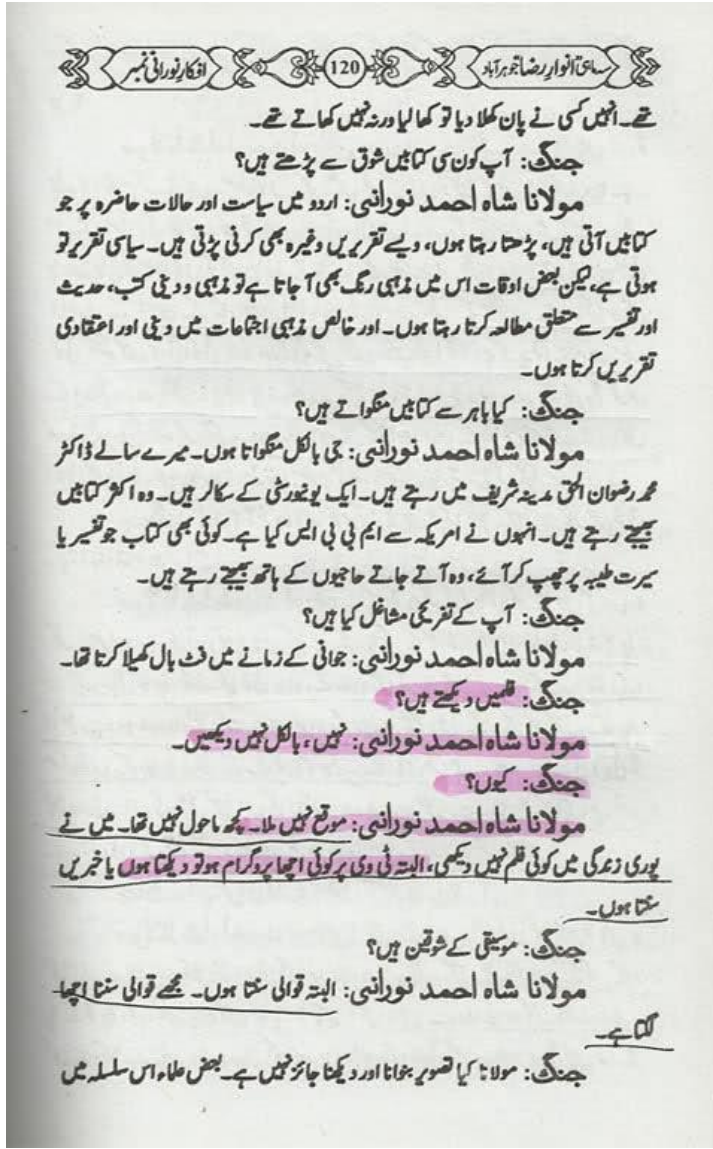 سہ ماہی انوارِ رضا جوہر آباد 120 افکارِ نورانی نمبر
تھے۔ انہیں کسی نے پان کھلا دیا تو کھا لیا ورنہ نہیں کھاتے تھے۔
جنگ: آپ کون سی کتابیں شوق سے پڑھتے ہیں؟
مولانا شاہ احمد نورانی: اردو میں سیاست اور حالات حاضرہ پر جو
کتابیں آتی ہیں، پڑھتا رہتا ہوں، ویسے تقریریں وغیرہ بھی کرنی پڑتی ہیں۔ سیاسی تقریر تو
ہوتی ہے، لیکن بعض اوقات اس میں مذہبی رنگ بھی آ جاتا ہے تو مذہبی و دینی کتب، حدیث
اور تفسیر سے متعلق مطالعہ کرتا رہتا ہوں۔ اور خالص مذہبی اجتماعات میں دینی اور اعتقادی
تقریریں کرتا ہوں۔
جنگ: کیا باہر سے کتابیں منگواتے ہیں؟
مولانا شاہ احمد نورانی: جی بالکل منگواتا ہوں۔ میرے سالے ڈاکٹر
محمد رضوان الحق مدینہ شریف میں رہتے ہیں۔ ایک یونیورسٹی کے سکالر ہیں۔ وہ اکثر کتابیں
بھیجتے رہتے ہیں۔ انہوں نے امریکہ سے ایم بی بی ایس کیا ہے۔ کوئی بھی کتاب جو تفسیر یا
سیرت طیبہ پر چھپ کر آئے، وہ آتے جاتے حاجیوں کے ہاتھ بھیجتے رہتے ہیں۔
جنگ: آپ کے تفریحی مشاغل کیا ہیں؟
مولانا شاہ احمد نورانی: جوانی کے زمانے میں فٹ بال کھیلا کرتا تھا۔
جنگ: فلمیں دیکھتے ہیں؟
مولانا شاہ احمد نورانی: نہیں، بالکل نہیں دیکھیں۔
جنگ: کیوں؟
مولانا شاہ احمد نورانی: موقع نہیں ملا۔ کچھ ماحول نہیں تھا۔ میں نے
پوری زندگی میں کوئی فلم نہیں دیکھی، البتہ ٹی وی پر کوئی اچھا پروگرام ہو تو دیکھتا ہوں یا خبریں
سنتا ہوں۔
جنگ: موسیقی کے شوقین ہیں؟
مولانا شاہ احمد نورانی: البتہ قوالی سنتا ہوں۔ مجھے قوالی سننا اچھا
لگتا ہے۔
جنگ: مولانا کیا تصویر بنوانا اور دیکھنا جائز نہیں ہے۔ بعض علماء اس سلسلہ میں